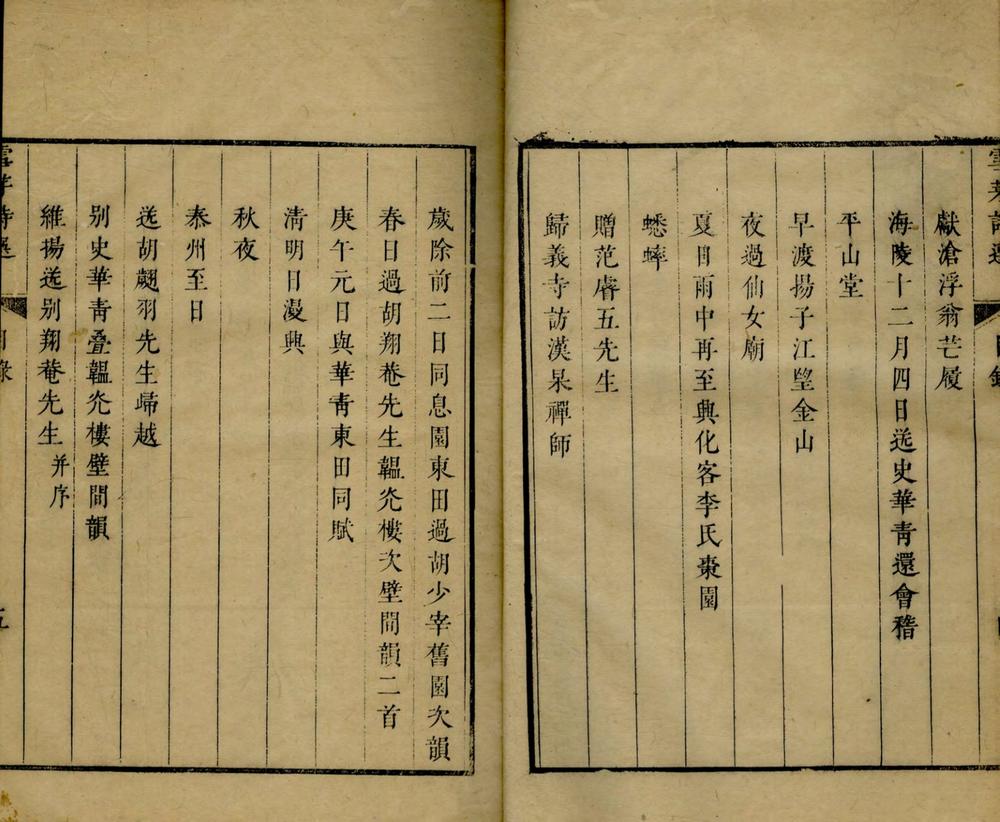 獻滄浮翁芒履
海陵十二月四日送史華青還會稽
平山堂
早渡揚子江望金山
夜過仙女廟
夏日雨中再至興化客李氏棗園
蟋蟀
贈范廥五先生
歸義寺訪漢杲禪師
歲除前二日同息園東田過胡少宰舊園次韻
春日過胡翔菴先生韞光樓次壁間韻二首
庚午元日與華青東田同賦
清明日漫興
秋夜
泰州至日
送胡翽羽先生歸越
別史華青疊韞光樓壁間韻
維揚送別翔菴先生 并序
目錄
五